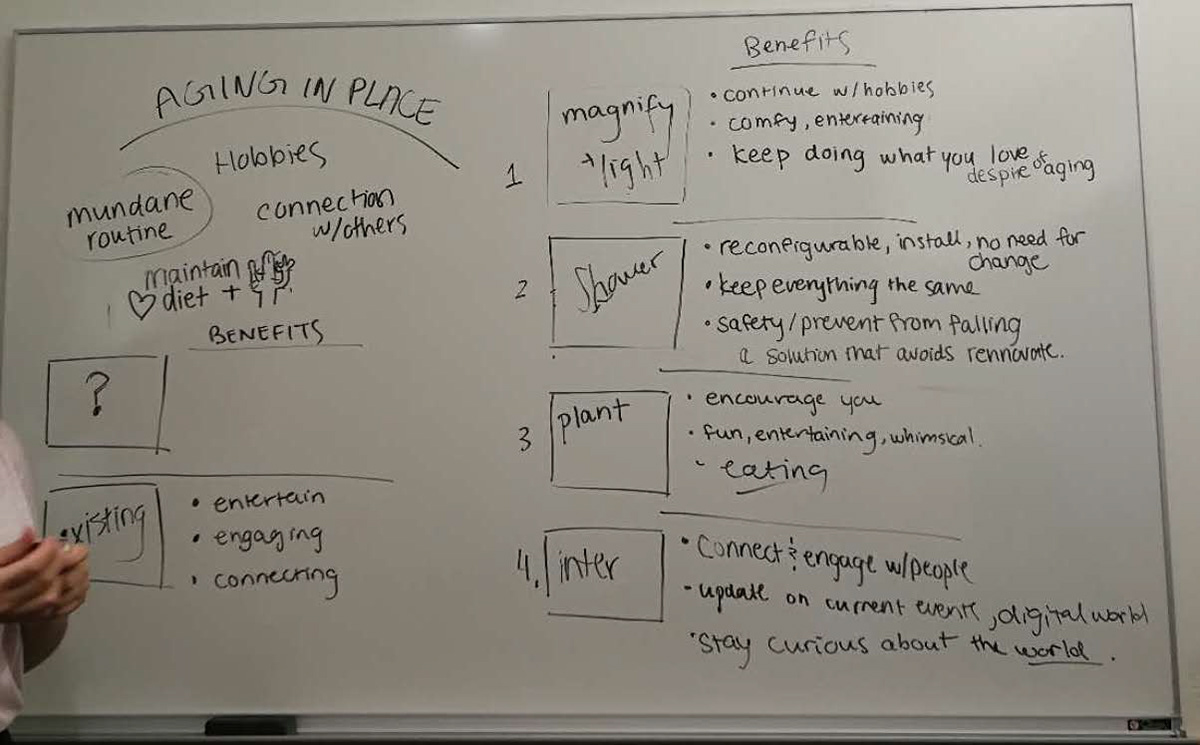 AGING IN PLACE
Hobbies
mundane
routine
connection
w/others
maintain
♡ diet +
BENEFITS
?
existing
• entertain
• engaging
• connecting
Benefits
1
magnify
+ light
• continue w/hobbies
• comfy, entertaining
• keep doing what you love
despite of aging
2
Shower
• reconfigurable, install, no need for
change
• keep everything the same
• safety/prevent from falling
a solution that avoids rennovate.
3
plant
• encourage you
• fun, entertaining, whimsical.
- eating
4.
inter
• Connect & engage w/people
- update on current events, digital world
• stay curious about the world.